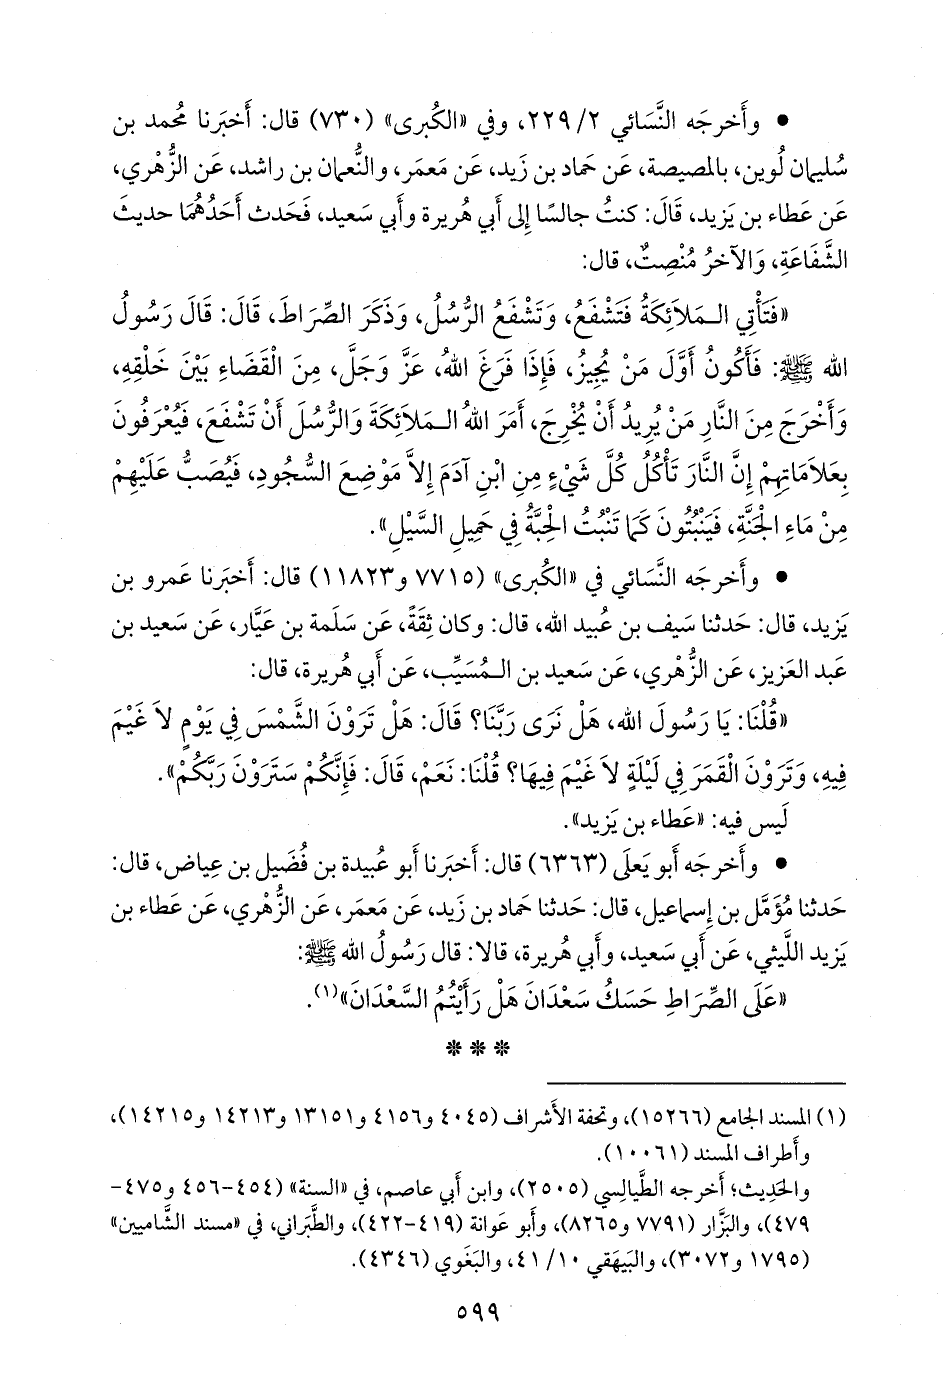 • وأَخرجَه النَّسَائي ٢/ ٢٢٩، وفي «الكُبرى» (٧٣٠) قال: أَخبَرنا مُحمد بن
سُليمان لُوين، بالمصيصة، عَن حَماد بن زَيد، عَن مَعمَر، والنُّعمان بن راشد، عَن الزُّهْري،
عَن عَطاء بن يَزيد، قَالَ: كنتُ جالسًا إِلى أَبي هُريرة وأَبي سَعيد، فَحَدث أَحَدُهُمَا حديثَ
الشَّفَاعَةِ، وَالآخرُ مُنْصِتٌ، قال:
«فَتَأْتِي الـمَلَائِكَةُ فَتَشْفَعُ، وَتَشْفَعُ الرُّسُلُ، وَذَكَرَ الصِّرَاطَ، قَالَ: قَالَ رَسُولُ
الله ﷺ: فَأَكُونُ أَوَّلَ مَنْ يُجِيزُ، فَإِذَا فَرَغَ اللهُ، عَزَّ وَجَلَّ، مِنَ الْقَضَاءِ بَيْنَ خَلْقِهِ،
وَأَخْرَجَ مِنَ النَّارِ مَنْ يُرِيدُ أَنْ يُخْرِجَ، أَمَرَ اللهُ الـمَلَائِكَةَ وَالرُّسُلَ أَنْ تَشْفَعَ، فَيُعْرَفُونَ
بِعَلَامَاتِهِمْ إِنَّ النَّارَ تَأْكُلُ كُلَّ شَيْءٍ مِنِ ابْنِ آدَمَ إِلاَّ مَوْضِعَ السُّجُودِ، فَيُصَبُّ عَلَيْهِمْ
مِنْ مَاءِ الْجَنَّةِ، فَيَنْبُتُونَ كَمَا تَنْبُتُ الْحِبَّةُ فِي حَمِيلِ السَّيْلِ».
• وأَخرجَه النَّسَائي في «الكُبرى» (٧٧١٥ و١١٨٢٣) قال: أَخبَرنا عَمرو بن
يَزيد، قال: حَدثنا سَيف بن عُبيد الله، قال: وكان ثِقَةً، عَن سَلَمة بن عَيَّار، عَن سَعيد بن
عَبد العَزيز، عَن الزُّهْري، عَن سَعيد بن الـمُسَيِّب، عَن أَبي هُريرة، قال:
«قُلْنَا: يَا رَسُولَ الله، هَلْ نَرَى رَبَّنَا؟ قَالَ: هَلْ تَرَوْنَ الشَّمْسَ فِي يَوْمٍ لاَ غَيْمَ
فِيهِ، وَتَرَوْنَ الْقَمَرَ فِي لَيْلَةٍ لاَ غَيْمَ فِيهَا؟ قُلْنَا: نَعَمْ، قَالَ: فَإِنَّكُمْ سَتَرَوْنَ رَبَّكُمْ».
لَيس فيه: «عَطاء بن يَزيد».
• وأَخرجَه أَبو يَعلَى (٦٣٦٣) قال: أَخبَرنا أَبو عُبيدة بن فُضَيل بن عِياض، قال:
حَدثنا مُؤَمَّل بن إِسماعيل، قال: حَدثنا حَماد بن زَيد، عَن مَعمَر، عَن الزُّهْري، عَن عَطاء بن
يَزيد اللَّيثي، عَن أَبي سَعيد، وأَبي هُريرة، قالا: قال رَسُولُ الله ﷺ:
«عَلَى الصِّرَاطِ حَسَكُ سَعْدَانَ هَلْ رَأَيْتُمُ السَّعْدَانَ»(١).
* * *
(١) المسند الجامع (١٥٢٦٦)، وتحفة الأَشراف (٤٠٤٥ و٤١٥٦ و١٣١٥١ و١٤٢١٣ و١٤٢١٥)،
وأَطراف المسند (١٠٠٦١).
والحَدِيث؛ أَخرجه الطَّيالِسي (٢٥٠٥)، وابن أَبي عاصم، في «السنة» (٤٥٤-٤٥٦ و٤٧٥-
٤٧٩)، والبَزَّار (٧٧٩١ و٨٢٦٥)، وأَبو عَوانة (٤١٩-٤٢٢)، والطَّبَراني، في «مسند الشَّاميين»
(١٧٩٥ و٣٠٧٢)، والبَيهَقي ١٠/ ٤١، والبَغَوي (٤٣٤٦).
٥٩٩